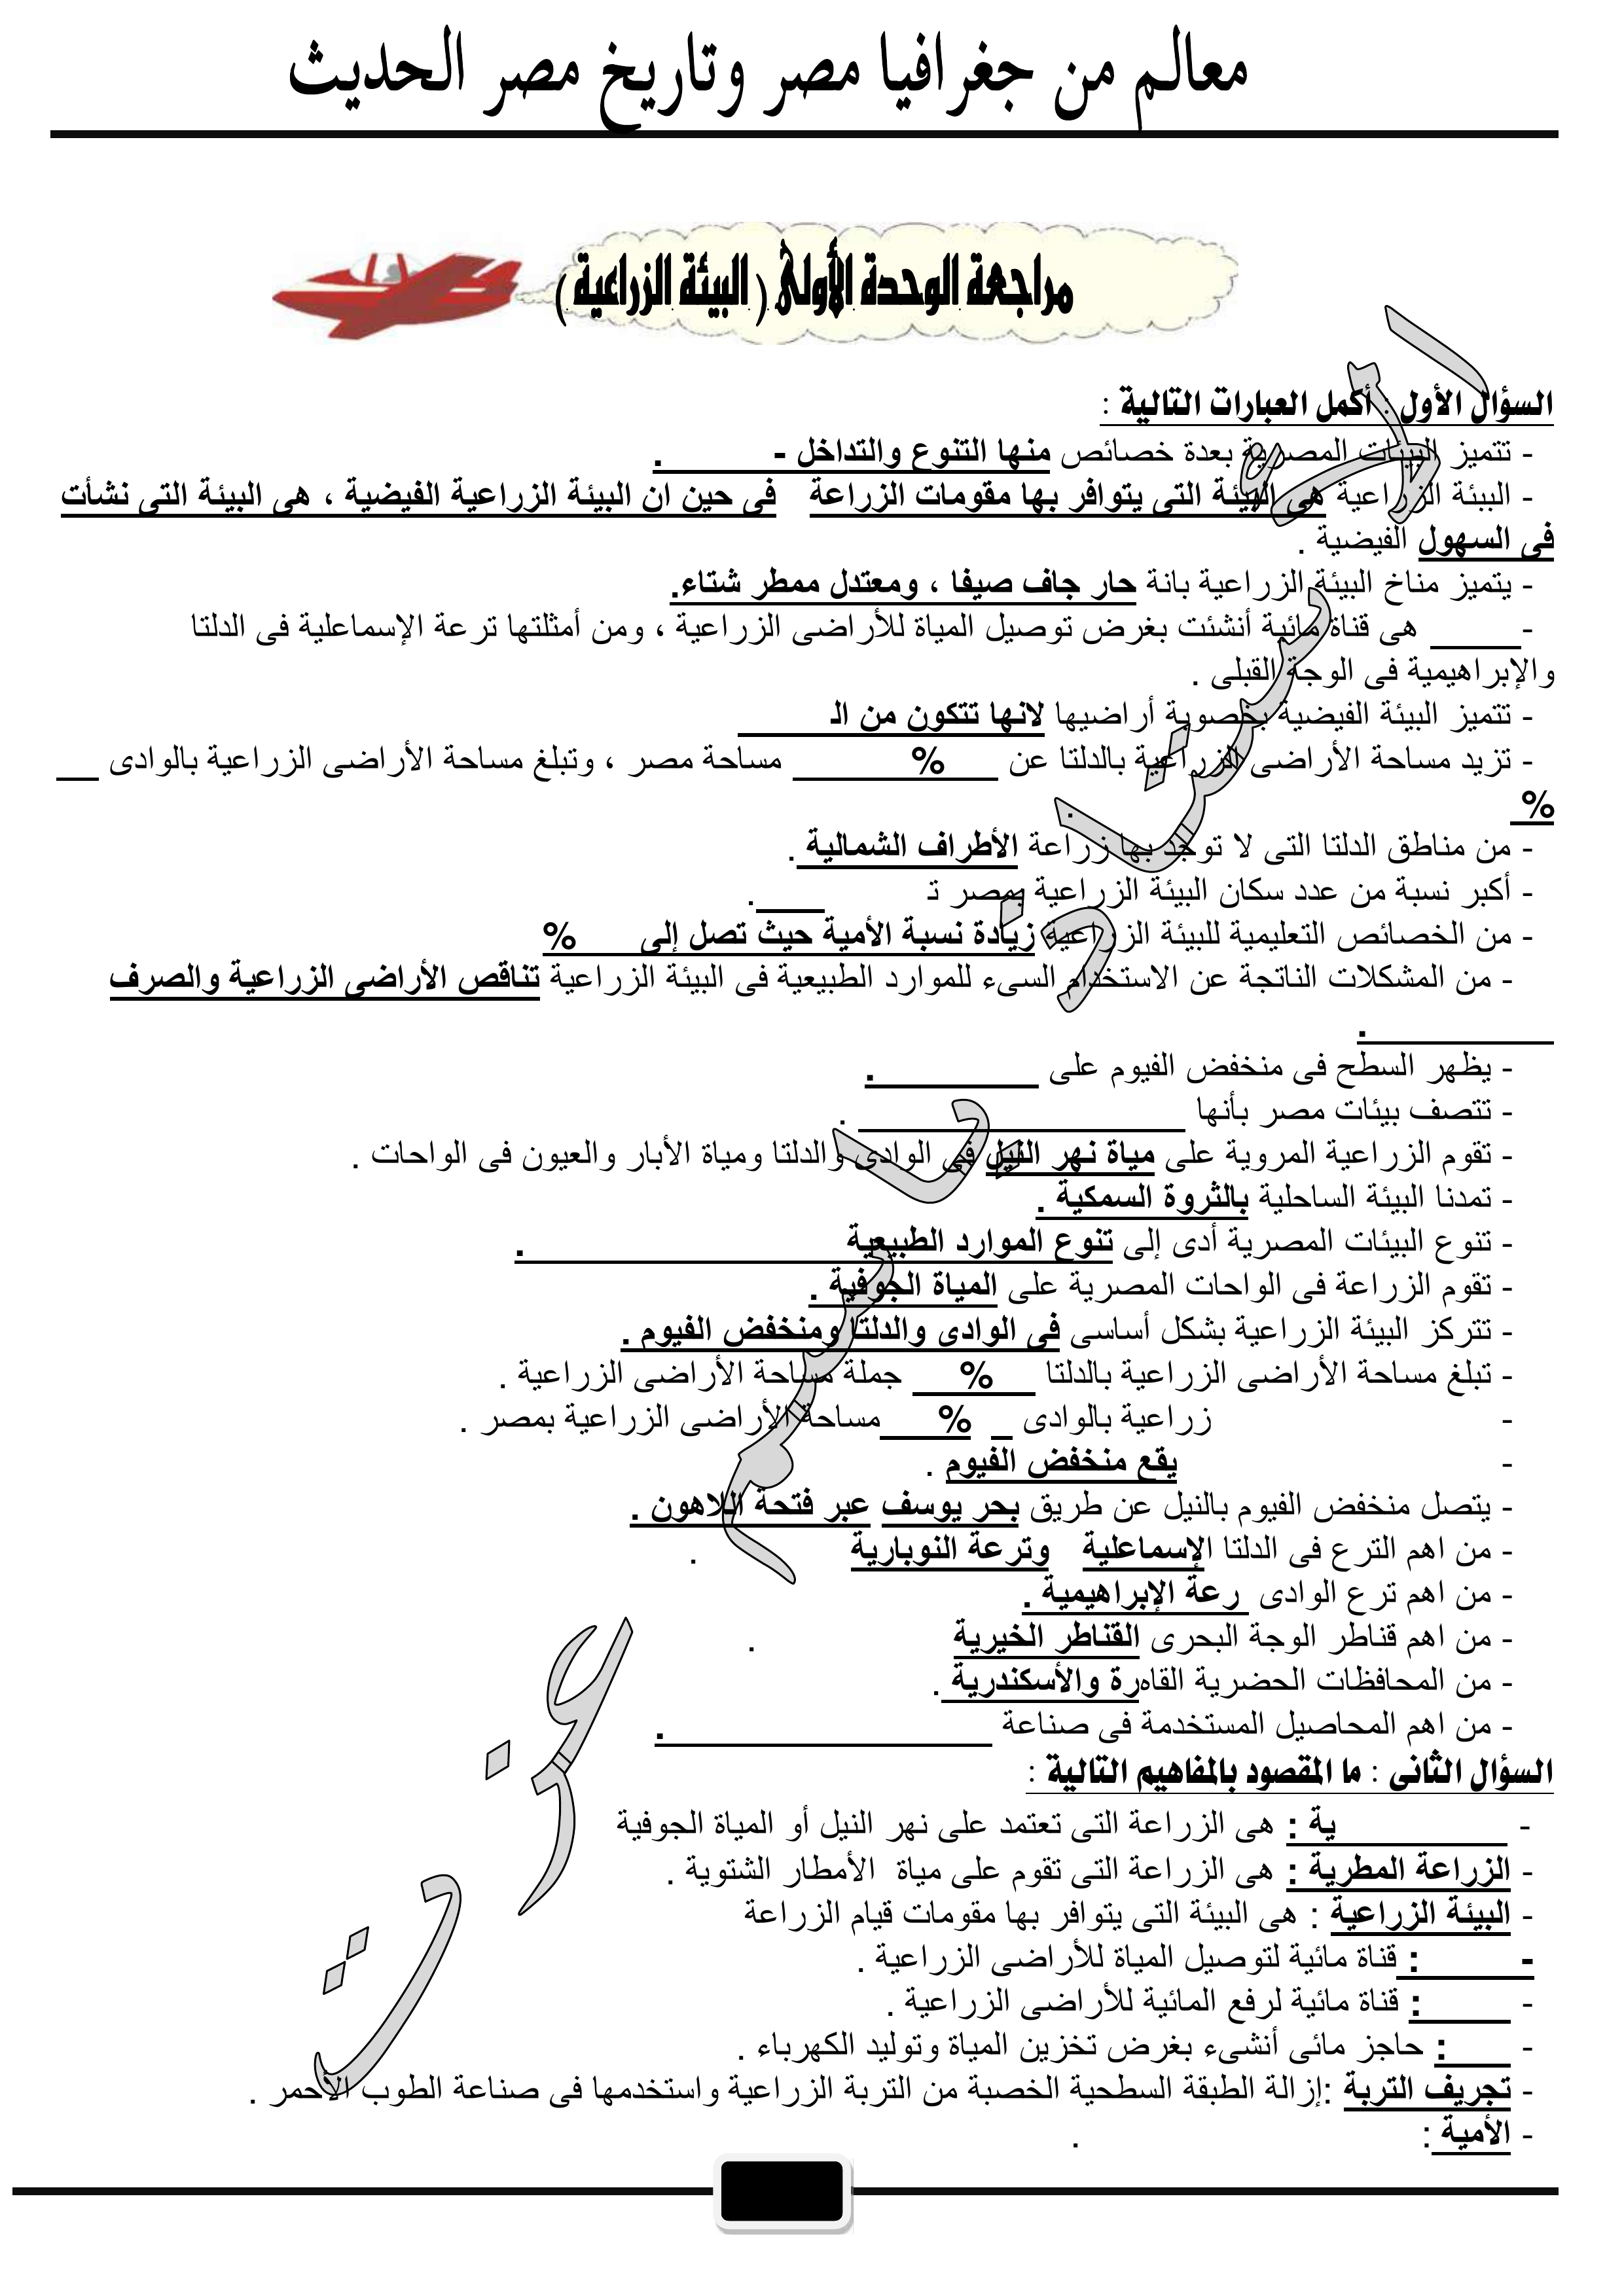 معالم من جغرافيا مصر وتاريخ مصر الحديث
مراجعة الوحدة الأولى ( البيئة الزراعية )
السؤال الأول : أكمل العبارات التالية :
- تتميز البيئات المصرية بعدة خصائص منها التنوع والتداخل - .
- البيئة الزراعية هى البيئة التى يتوافر بها مقومات الزراعة فى حين ان البيئة الزراعية الفيضية ، هى البيئة التى نشأت
فى السهول الفيضية .
- يتميز مناخ البيئة الزراعية بانة حار جاف صيفا ، ومعتدل ممطر شتاء.
- هى قناة مائية أنشئت بغرض توصيل المياة للأراضى الزراعية ، ومن أمثلتها ترعة الإسماعلية فى الدلتا
والإبراهيمية فى الوجة القبلى .
- تتميز البيئة الفيضية بخصوبة أراضيها لانها تتكون من الـ
- تزيد مساحة الأراضى الزراعية بالدلتا عن % مساحة مصر ، وتبلغ مساحة الأراضى الزراعية بالوادى
% .
- من مناطق الدلتا التى لا توجد بها زراعة الأطراف الشمالية .
- أكبر نسبة من عدد سكان البيئة الزراعية بمصر تـ .
- من الخصائص التعليمية للبيئة الزراعية زيادة نسبة الأمية حيث تصل إلى %
- من المشكلات الناتجة عن الاستخدام السىء للموارد الطبيعية فى البيئة الزراعية تناقص الأراضى الزراعية والصرف
.
- يظهر السطح فى منخفض الفيوم على .
- تتصف بيئات مصر بأنها .
- تقوم الزراعية المروية على مياة نهر النيل فى الوادى والدلتا ومياة الأبار والعيون فى الواحات .
- تمدنا البيئة الساحلية بالثروة السمكية .
- تنوع البيئات المصرية أدى إلى تنوع الموارد الطبيعية .
- تقوم الزراعة فى الواحات المصرية على المياة الجوفية .
- تتركز البيئة الزراعية بشكل أساسى فى الوادى والدلتا ومنخفض الفيوم .
- تبلغ مساحة الأراضى الزراعية بالدلتا % جملة مساحة الأراضى الزراعية .
- زراعية بالوادى % مساحة الأراضى الزراعية بمصر .
- يقع منخفض الفيوم .
- يتصل منخفض الفيوم بالنيل عن طريق بحر يوسف عبر فتحة اللاهون .
- من اهم الترع فى الدلتا الإسماعلية وترعة النوبارية .
- من اهم ترع الوادى رعة الإبراهيمية .
- من اهم قناطر الوجة البحرى القناطر الخيرية .
- من المحافظات الحضرية القاهرة والأسكندرية .
- من اهم المحاصيل المستخدمة فى صناعة .
السؤال الثانى : ما المقصود بالمفاهيم التالية :
- ية : هى الزراعة التى تعتمد على نهر النيل أو المياة الجوفية
- الزراعة المطرية : هى الزراعة التى تقوم على مياة الأمطار الشتوية .
- البيئة الزراعية : هى البيئة التى يتوافر بها مقومات قيام الزراعة
- : قناة مائية لتوصيل المياة للأراضى الزراعية .
- : قناة مائية لرفع المائية للأراضى الزراعية .
- : حاجز مائى أنشىء بغرض تخزين المياة وتوليد الكهرباء .
- تجريف التربة :إزالة الطبقة السطحية الخصبة من التربة الزراعية واستخدمها فى صناعة الطوب الأحمر .
- الأمية : .